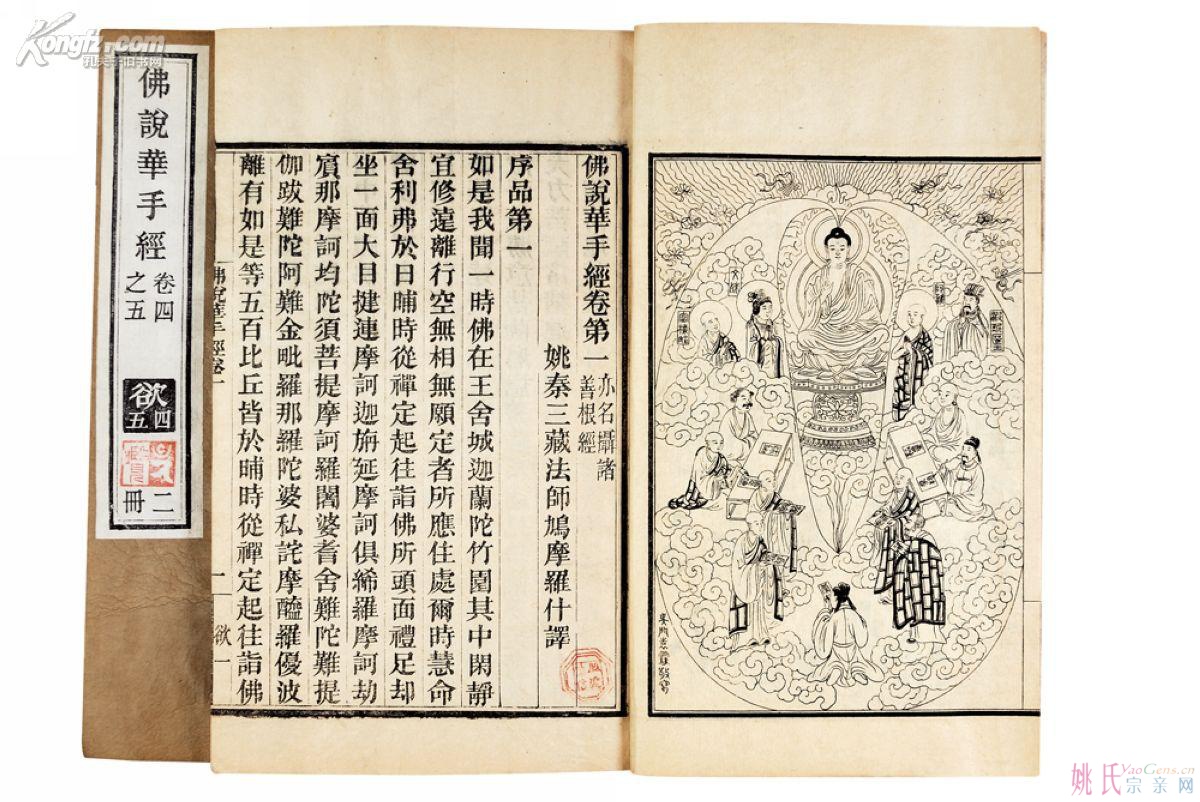 Kongfz.com
孔夫子旧书网
佛說華手經
卷四
之五
欲
四
五
二
冊
佛說華手經卷第一
亦名攝諸
善根經
姚秦三藏法師鳩摩羅什譯
序品第一
如是我聞一時佛在王舍城迦蘭陀竹園其中閑靜
宜修遠離行空無相無願定者所應住處爾時慧命
舍利弗於日晡時從禪定起往詣佛所頭面禮足却
坐一面大目揵連摩訶迦旃延摩訶俱絺羅摩訶劫
賔那摩訶均陀須菩提摩訶羅閣婆耆舍難陀難提
伽跋難陀阿難金毗羅那羅陀婆私詫摩醯羅優波
離有如是等五百比丘皆於晡時從禪定起往詣佛
佛說華手經卷一
一
欲一
姚氏
YaoGens.cn
宗亲网